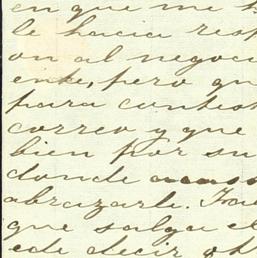 en que me h
le hacia resp
on al negoci
ente, pero qu
para contest
correo y que
bien por su
donde
abrazarle.
que salga el
ede decir